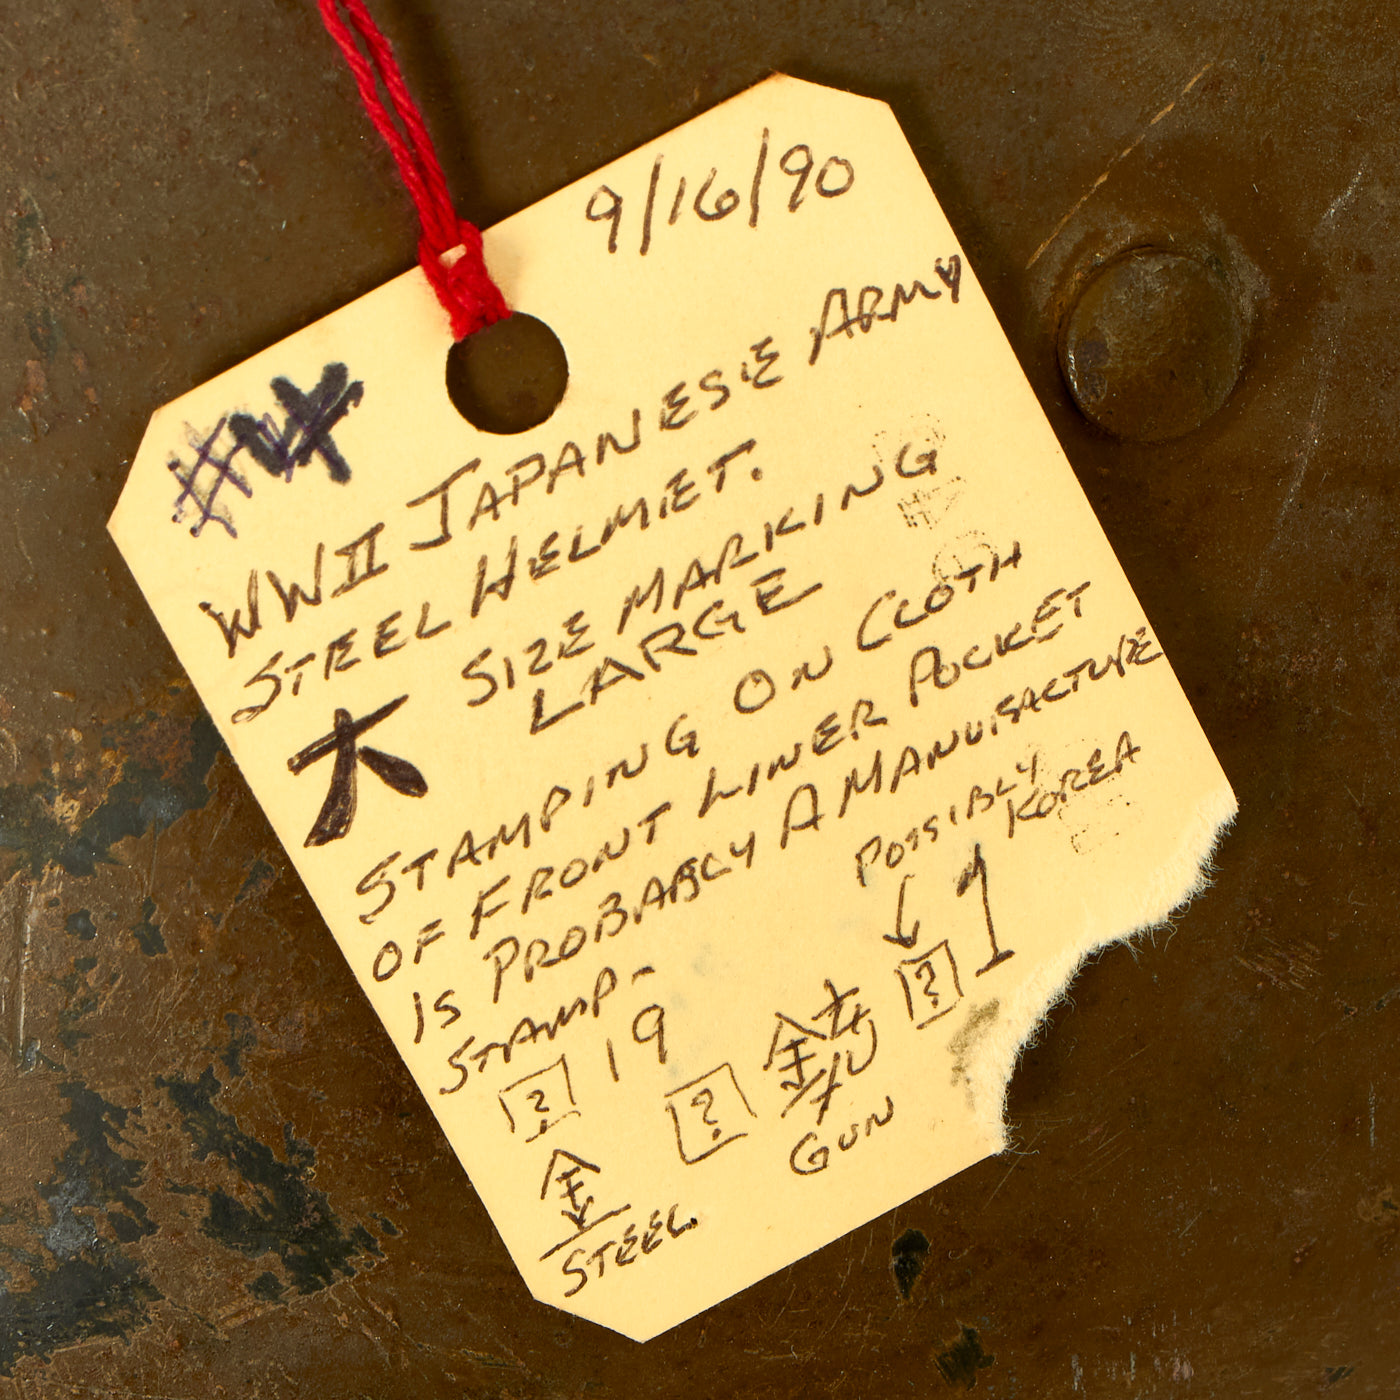 9/16/90
WWII JAPANESE ARMY
STEEL HELMET.
大 SIZE MARKING
LARGE
STAMPING ON CLOTH
OF FRONT LINER POCKET
IS PROBABLY A MANUFACTURE
STAMP-
POSSIBLY
KOREA
[?] 19 [?] [?]
金
STEEL
GUN